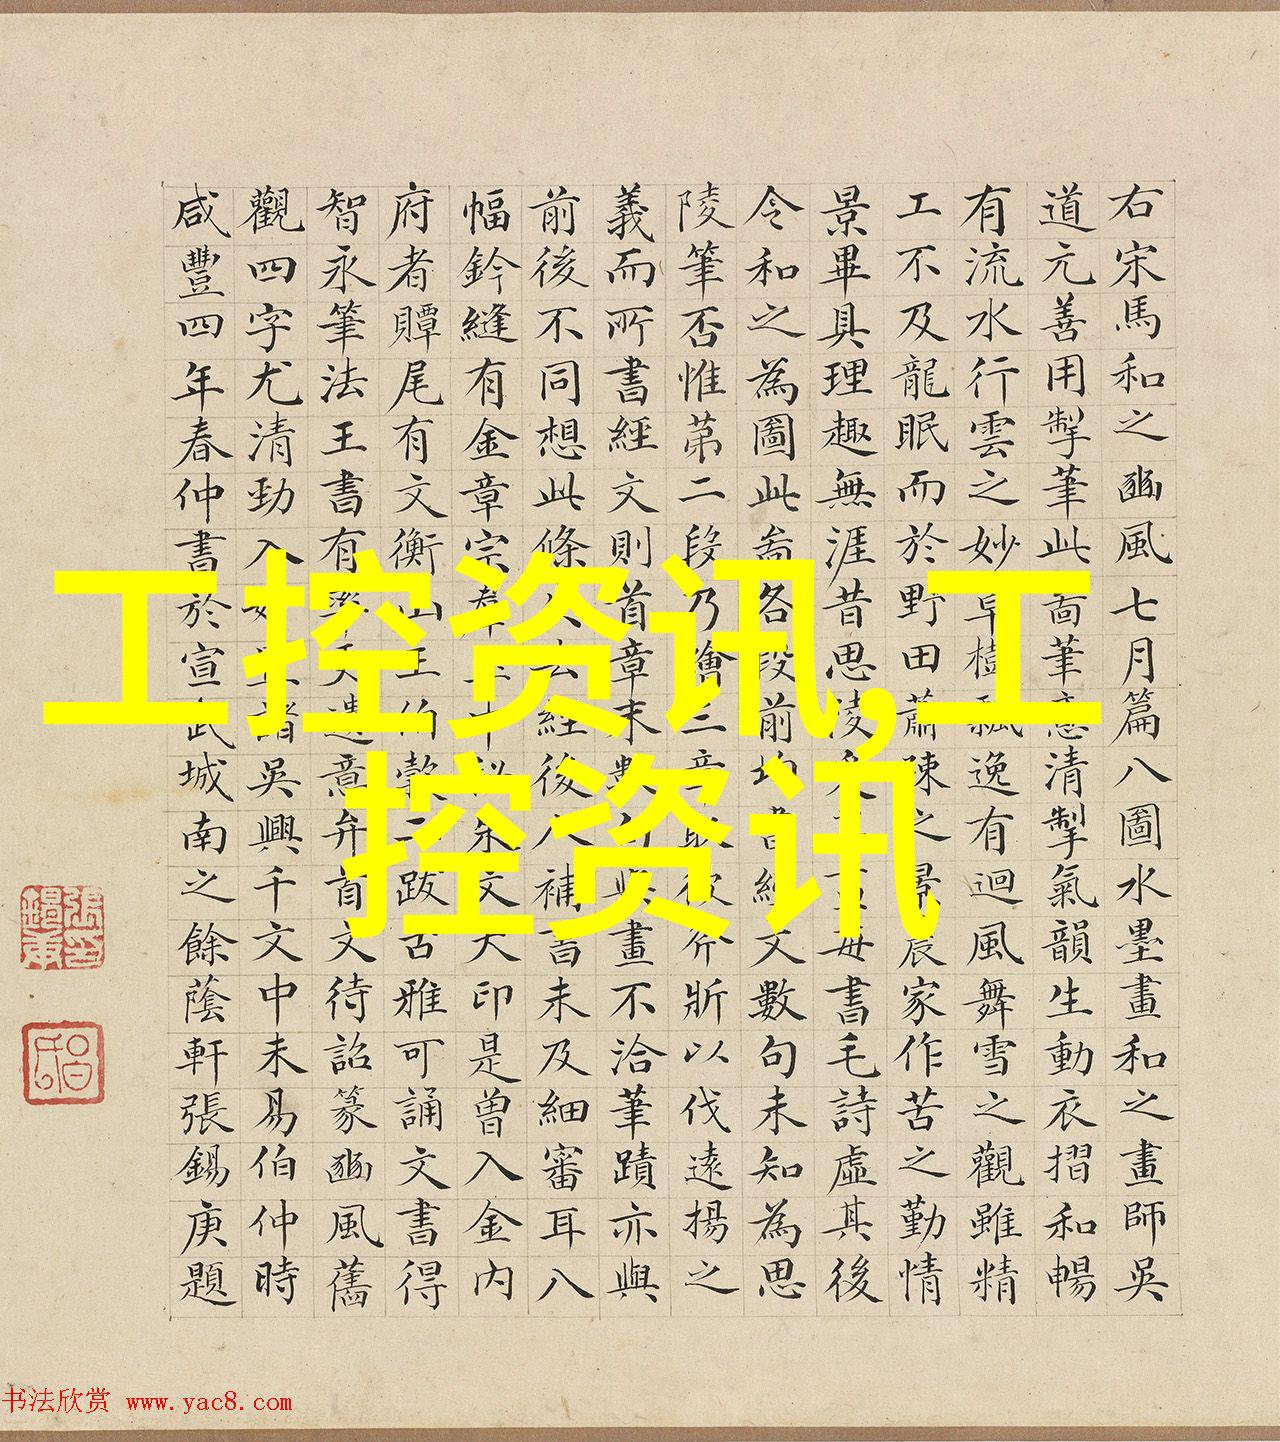 右宋馬和之豳風七月篇八圖水墨畫和之畫師吳
道元善用掣筆此啚筆意清掣氣韻生動衣摺和暢
有流水行雲之妙飄逸有迴風舞雪之觀雖精
工不及龍眠而於野田蕭陳之景農家作苦之勤情
景畢具理趣無涯昔思陵每書毛詩虛其後
令和之為圖此啚各段前均書經文數句未知為思
陵筆否惟第二段乃繪三章取彼斧斨以伐遠揚之
義而所書經文則首章末數句與畫不洽筆蹟亦與
前後不同想此條去經後人補書未及細審耳八
幅鈐縫有金章宗朱文大印是曾入金內
府者贉尾有文衡山王伯穀二跋古雅可誦文書得
智永筆法王書有率更遺意弁首文待詔篆豳風舊
觀四字尤清勁入諸吳興千文中未易伯仲時
咸豐四年春仲書於宣武城南之餘蔭軒張錫庚題
工控资讯,工
控资讯
书法欣赏 www.yac8.com